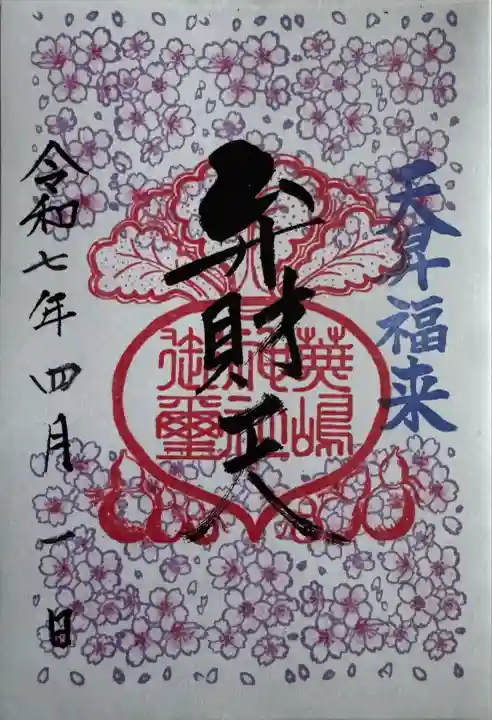 天昇福来
弁財天
蕪嶋
神社
御璽
令和七年四月一日